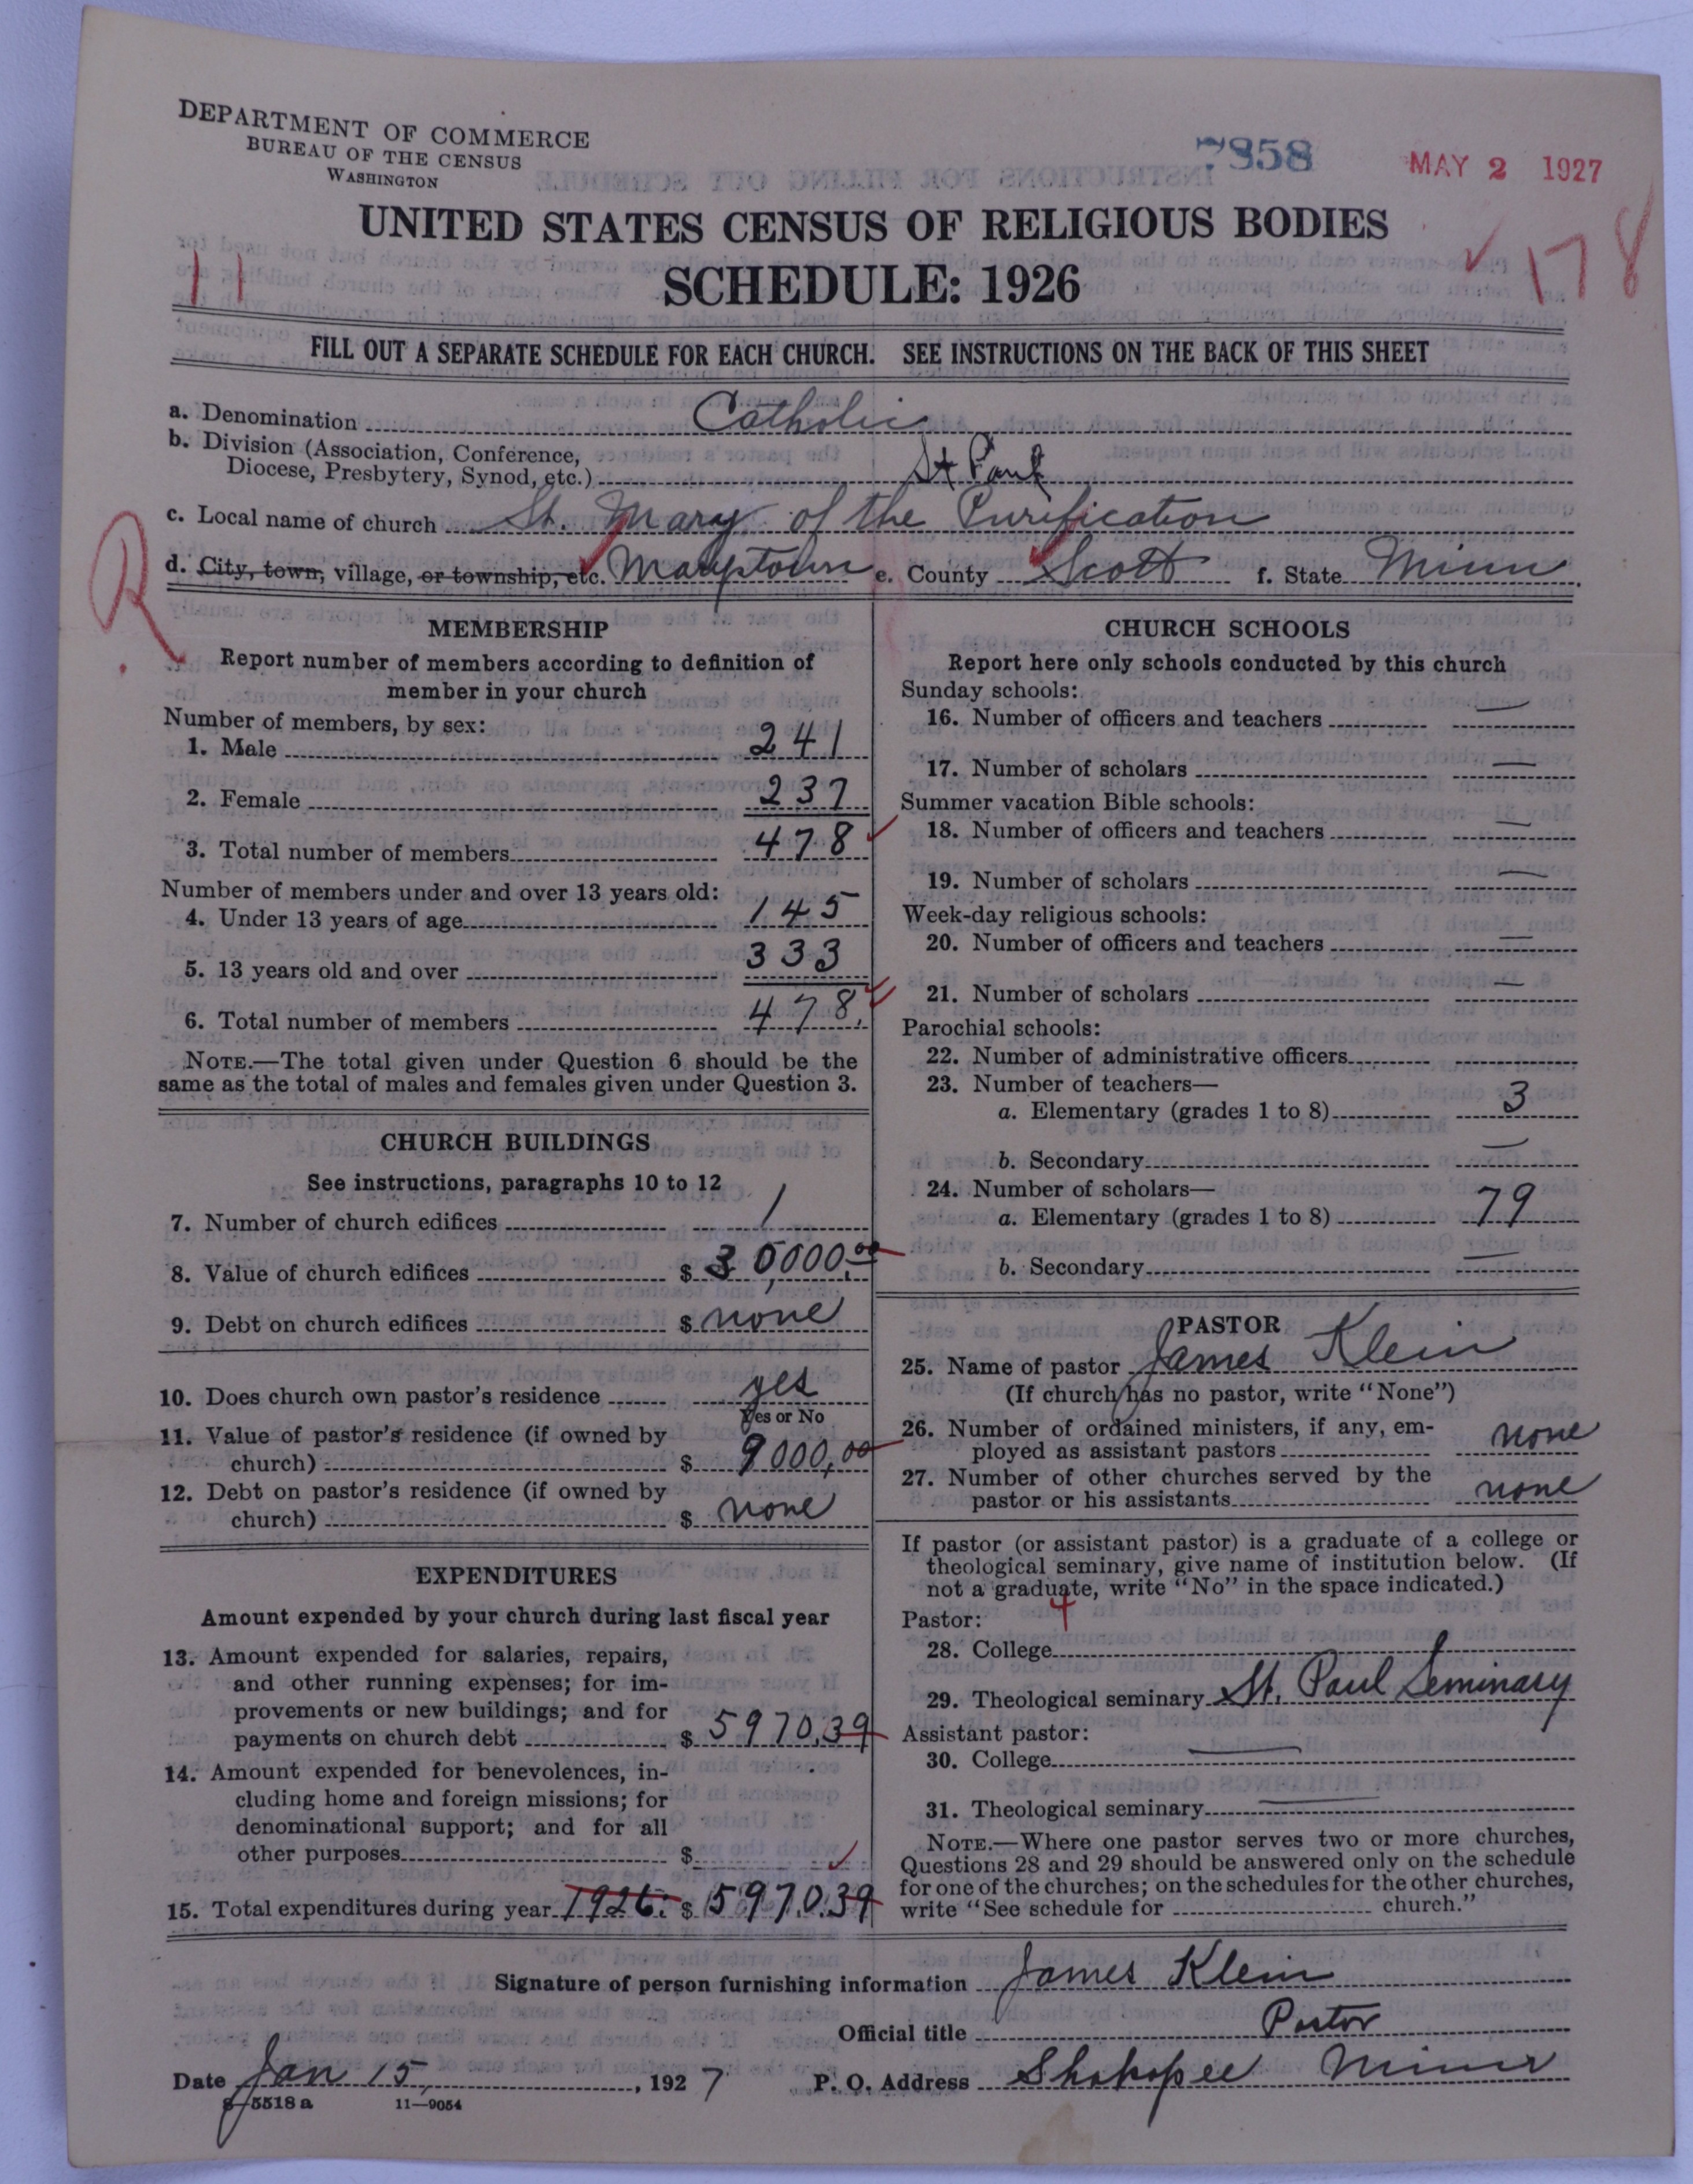 DEPARTMENT OF COMMERCE
BUREAU OF THE CENSUS
WASHINGTON
7858
MAY 2 1927
UNITED STATES CENSUS OF RELIGIOUS BODIES
SCHEDULE: 1926
11
178
FILL OUT A SEPARATE SCHEDULE FOR EACH CHURCH. SEE INSTRUCTIONS ON THE BACK OF THIS SHEET
a. Denomination Catholic
b. Division (Association, Conference,
Diocese, Presbytery, Synod, etc.) St Paul
c. Local name of church St. Mary of the Purification
R
d. City, town, village, or township, etc. Marystown e. County Scott f. State Minn
MEMBERSHIP
Report number of members according to definition of
member in your church
Number of members, by sex:
1. Male 241
2. Female 237
3. Total number of members 478
Number of members under and over 13 years old:
4. Under 13 years of age 145
5. 13 years old and over 333
6. Total number of members 478.
NOTE.—The total given under Question 6 should be the
same as the total of males and females given under Question 3.
CHURCH BUILDINGS
See instructions, paragraphs 10 to 12
7. Number of church edifices 1
8. Value of church edifices $ 30,000.00
9. Debt on church edifices $ none
10. Does church own pastor's residence yes
Yes or No
11. Value of pastor's residence (if owned by
church) $ 9000,00
12. Debt on pastor's residence (if owned by
church) $ none
EXPENDITURES
Amount expended by your church during last fiscal year
13. Amount expended for salaries, repairs,
and other running expenses; for im-
provements or new buildings; and for
payments on church debt $ 5970.39
14. Amount expended for benevolences, in-
cluding home and foreign missions; for
denominational support; and for all
other purposes $
15. Total expenditures during year 1926: $ 5970.39
CHURCH SCHOOLS
Report here only schools conducted by this church
Sunday schools:
16. Number of officers and teachers —
17. Number of scholars —
Summer vacation Bible schools:
18. Number of officers and teachers —
19. Number of scholars —
Week-day religious schools:
20. Number of officers and teachers —
21. Number of scholars —
Parochial schools:
22. Number of administrative officers
23. Number of teachers—
a. Elementary (grades 1 to 8) 3
b. Secondary —
24. Number of scholars—
a. Elementary (grades 1 to 8) 79
b. Secondary —
PASTOR
25. Name of pastor James Klein
(If church has no pastor, write "None")
26. Number of ordained ministers, if any, em-
ployed as assistant pastors none
27. Number of other churches served by the
pastor or his assistants none
If pastor (or assistant pastor) is a graduate of a college or
theological seminary, give name of institution below. (If
not a graduate, write "No" in the space indicated.)
4
Pastor:
28. College
29. Theological seminary St. Paul Seminary
Assistant pastor:
30. College —
31. Theological seminary —
NOTE.—Where one pastor serves two or more churches,
Questions 28 and 29 should be answered only on the schedule
for one of the churches; on the schedules for the other churches,
write "See schedule for church."
Signature of person furnishing information James Klein
Official title Pastor
Date Jan 15, 1927 P. O. Address Shakopee Minn
8—5518a 11—9054